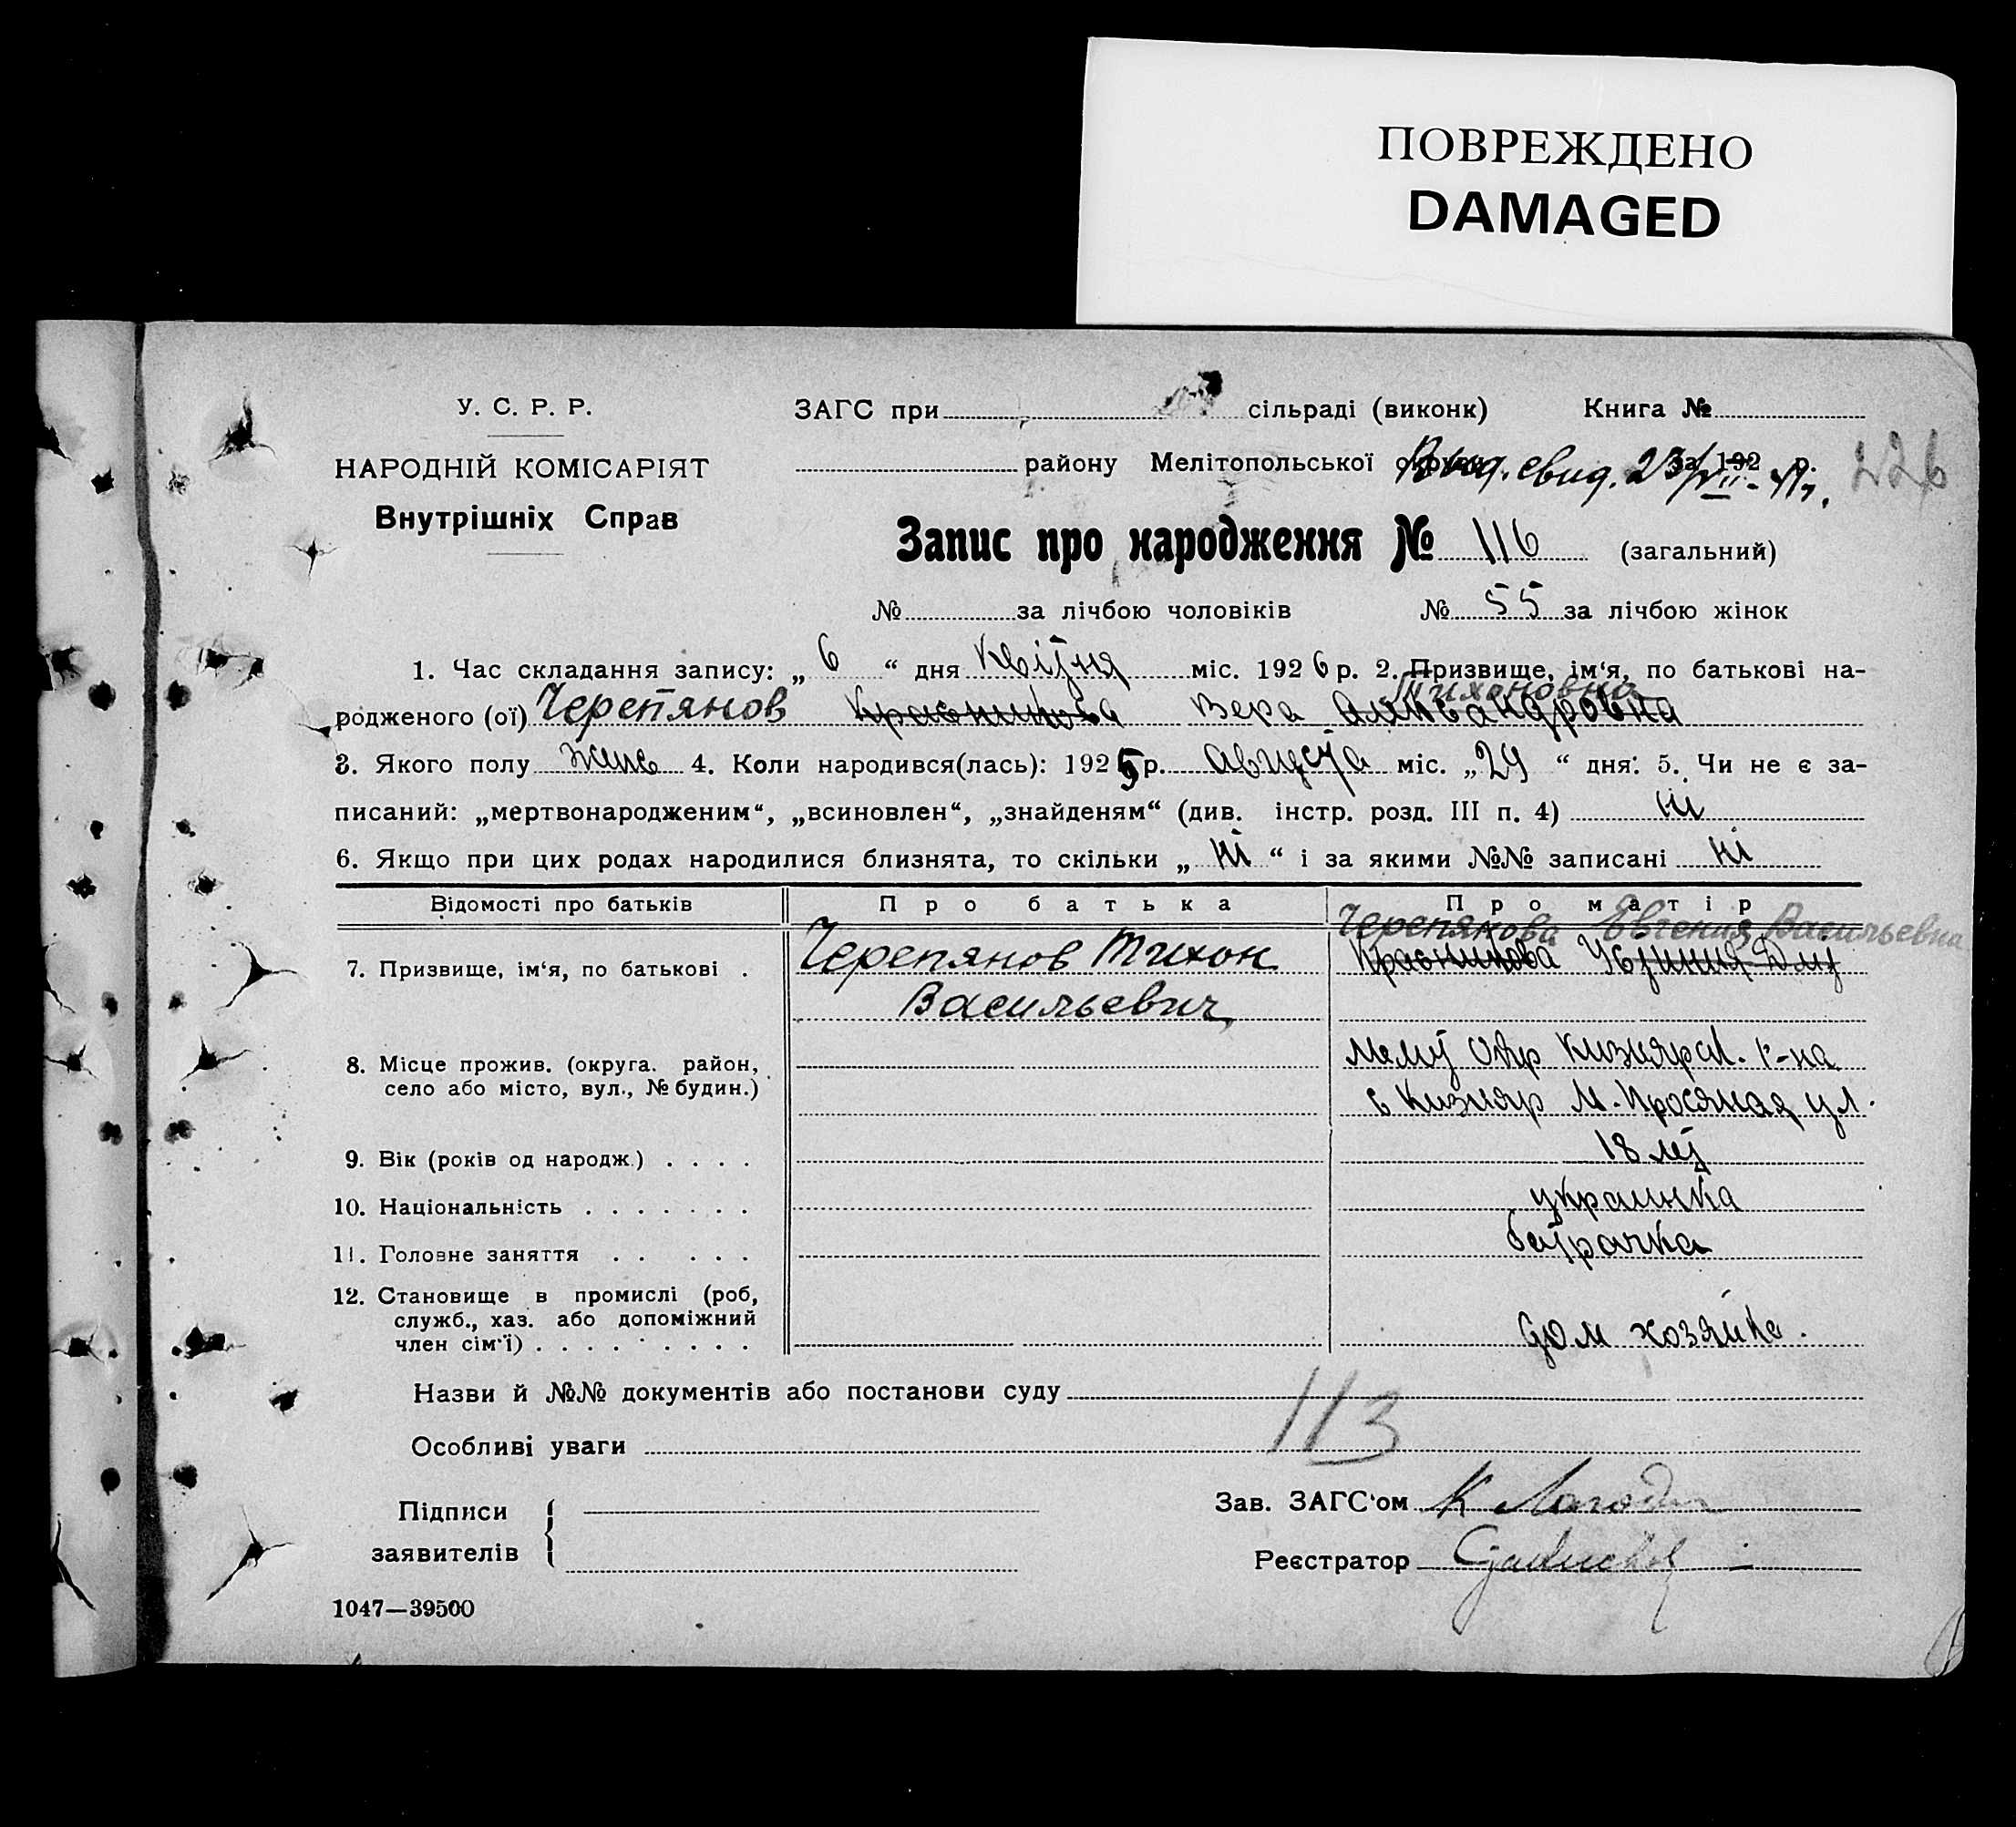 ПОВРЕЖДЕНО
DAMAGED
У. С. Р. Р.
НАРОДНІЙ КОМІСАРІЯТ
Внутрішніх Справ
ЗАГС при сільраді (виконк) Книга №
району Мелітопольської округи за 192 р.
Выд. свид. 23/VII- 226
Запис про народження № 116 (загальний)
№ за лічбою чоловіків № 55 за лічбою жінок
1. Час складання запису: „ 6 “ дня Квітня міс. 1926 р. 2. Призвище, ім‘я, по батькові на-
Тихоновна
родженого (ої) Черепянов Красникова Вера Александровна
3. Якого полу жин 4. Коли народився(лась): 1925 р. Августа міс. „29 “ дня: 5. Чи не є за-
писаний: „мертвонародженим“, „всиновлен“, „знайденям“ (див. інстр. розд. III п. 4) ні
6. Якщо при цих родах народилися близнята, то скільки „ ні “ і за якими №№ записані ні
Відомості про батьків Про батька Про матір
Черепянова Евгения Васильевна
7. Призвище, ім‘я, по батькові . Черепянов Тихон Красникова
Васильевич
8. Місце прожив. (округа. район, село або місто, вул., № будин.) Меліт Окр Кизиярск. р-на
с Кизияр М. Просяная ул.
9. Вік (років од народж.) . . . . 18 лет
10. Національність . . . . . . . украинка
11. Головне заняття . . . . . батрачка
12. Становище в промислі (роб,
служб., хаз. або допоміжний
член сім‘ї) . . . . . . . . . дом хозяйка.
Назви й №№ документів або постанови суду
113
Особливі уваги
Підписи
заявителів
Зав. ЗАГС‘ом К
Реєстратор
1047—39500